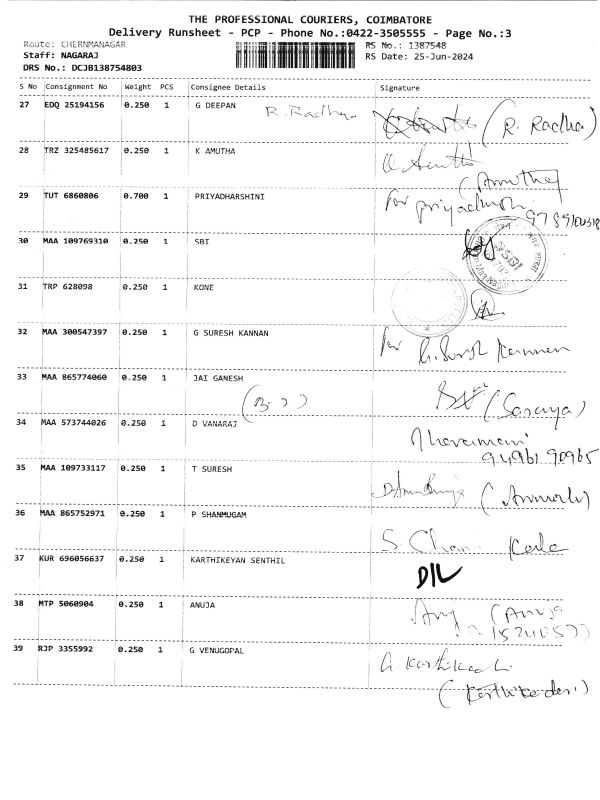 THE PROFESSIONAL COURIERS, COIMBATORE
Delivery Runsheet - PCP - Phone No.:0422-3505555 - Page No.:3
Route: CHERNMANAGAR
RS No.: 1387548
Staff: NAGARAJ
RS Date: 25-Jun-2024
DRS No.: DCJB138754803
S No Consignment No Weight PCS Consignee Details Signature
27 EDQ 25194156 0.250 1 G DEEPAN R. Radha (R. Radha)
28 TRZ 325485617 0.250 1 K AMUTHA
(Amutha)
29 TUT 6860806 0.700 1 PRIYADHARSHINI For
30 MAA 109769310 0.250 1 SBI
31 TRP 628098 0.250 1 KONE
32 MAA 300547397 0.250 1 G SURESH KANNAN For
G. Suresh Kannan
33 MAA 865774060 0.250 1 JAI GANESH
34 MAA 573744026 0.250 1 D VANARAJ
94961 90965
35 MAA 109733117 0.250 1 T SURESH
36 MAA 865752971 0.250 1 P SHANMUGAM
37 KUR 696056637 0.250 1 KARTHIKEYAN SENTHIL D/L
38 MTP 5060904 0.250 1 ANUJA (Anuja
39 RJP 3355992 0.250 1 G VENUGOPAL